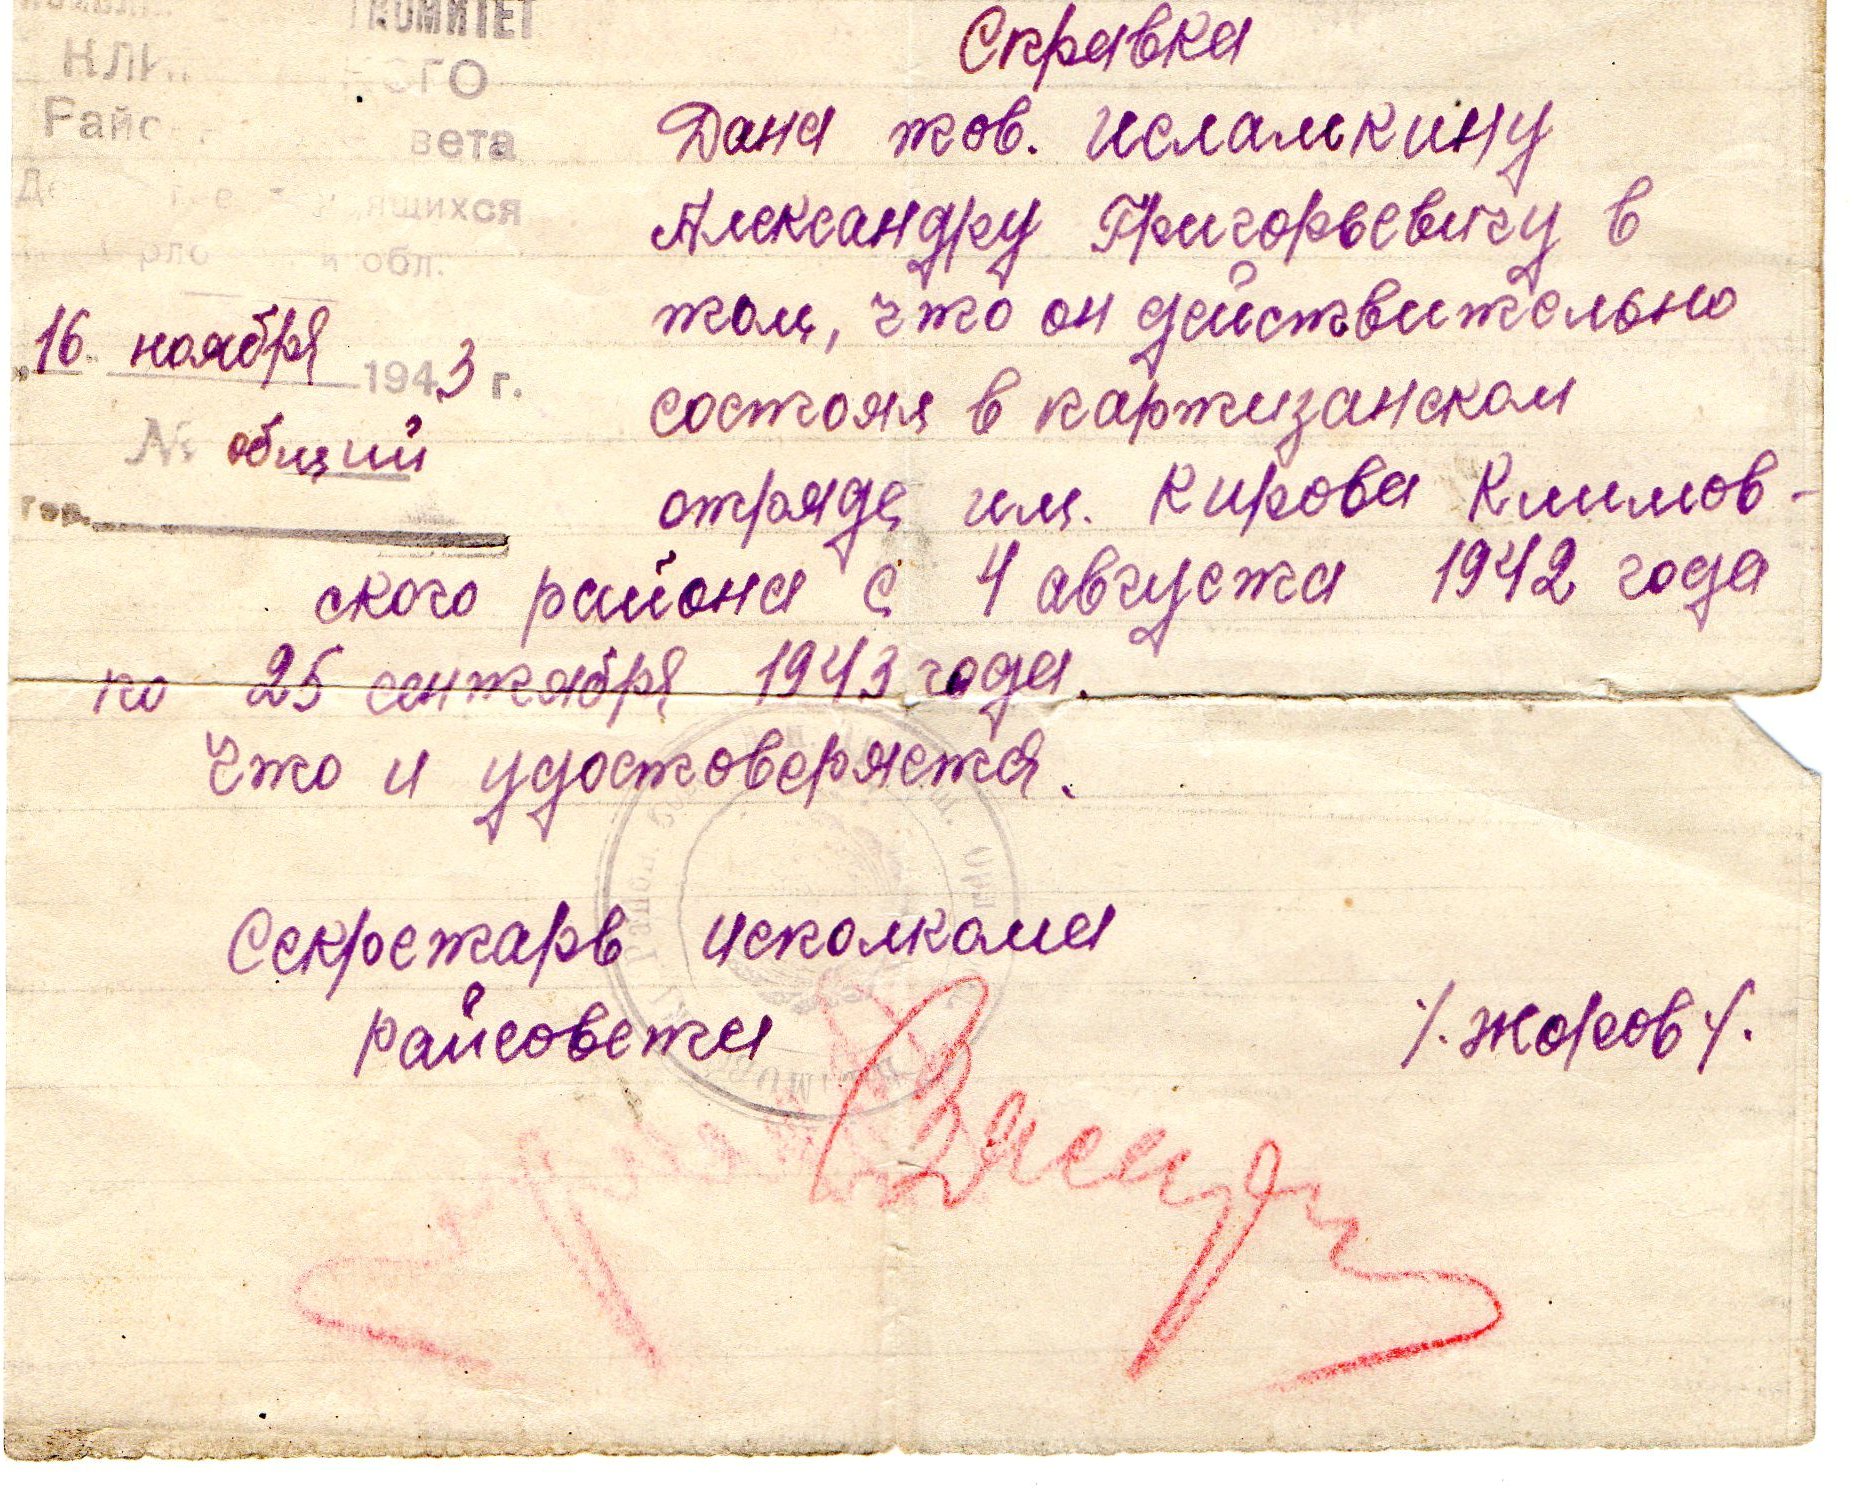 КОМИТЕТ
КЛИ КОГО
Райс вета
ящихся
обл.
„16" ноября 1943 г.
№ общий
гор.
Справка
Дана тов. Исламкину
Александру Григорьевичу в
том, что он действительно
состоял в партизанском
отряде им. Кирова Климов-
ского района с 4 августа 1942 года
по 25 сентября 1943 года.
Что и удостоверяется.
Секретарь исполкома
райсовета /. Жоров /.